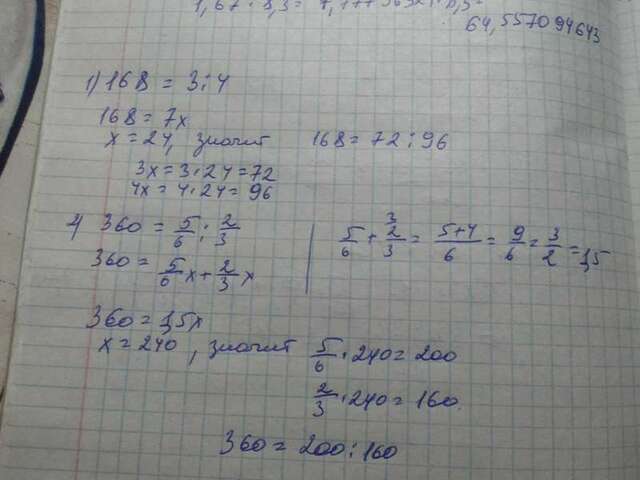 64,557094643
1) 168 = 3:4
168 = 7x
x = 24, значит 168 = 72:96
3x = 3·24 = 72
4x = 4·24 = 96
4) 360 = 5/6 : 2/3
5/6 + 2/3 = 5+4/6 = 9/6 = 3/2 = 1,5
360 = 5/6 x + 2/3 x
360 = 1,5x
x = 240, значит 5/6 · 240 = 200
2/3 · 240 = 160
360 = 200:160